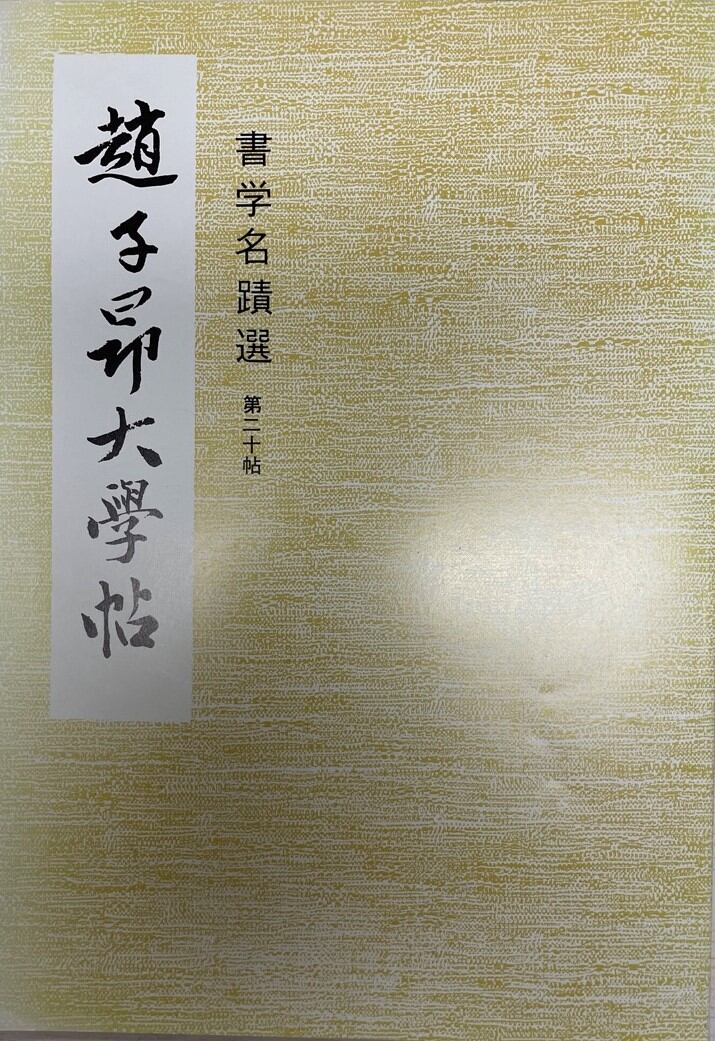 書学名蹟選 第二十帖
趙子昂大學帖